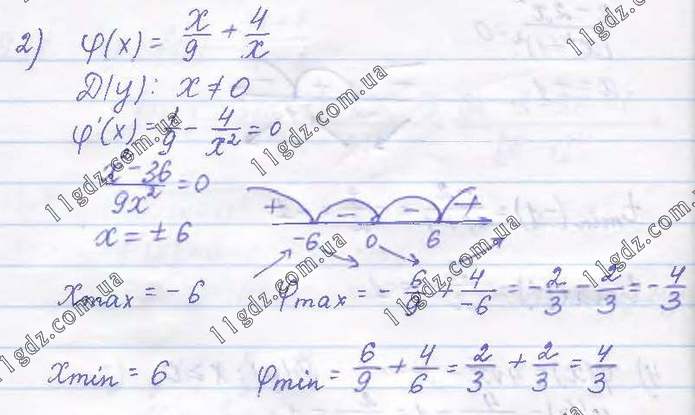 2) φ(x) = x/9 + 4/x
D(y): x ≠ 0
φ'(x) = 1/9 - 4/x² = 0
x² - 36 / 9x² = 0
x = ± 6
+ - - +
-6 0 6 x
x max = -6 φ max = - 6/9 + 4/-6 = - 2/3 - 2/3 = - 4/3
x min = 6 φ min = 6/9 + 4/6 = 2/3 + 2/3 = 4/3
11gdz.com.ua
11gdz.com.ua
11gdz.com.ua
11gdz.com.ua
11gdz.com.ua
11gdz.com.ua